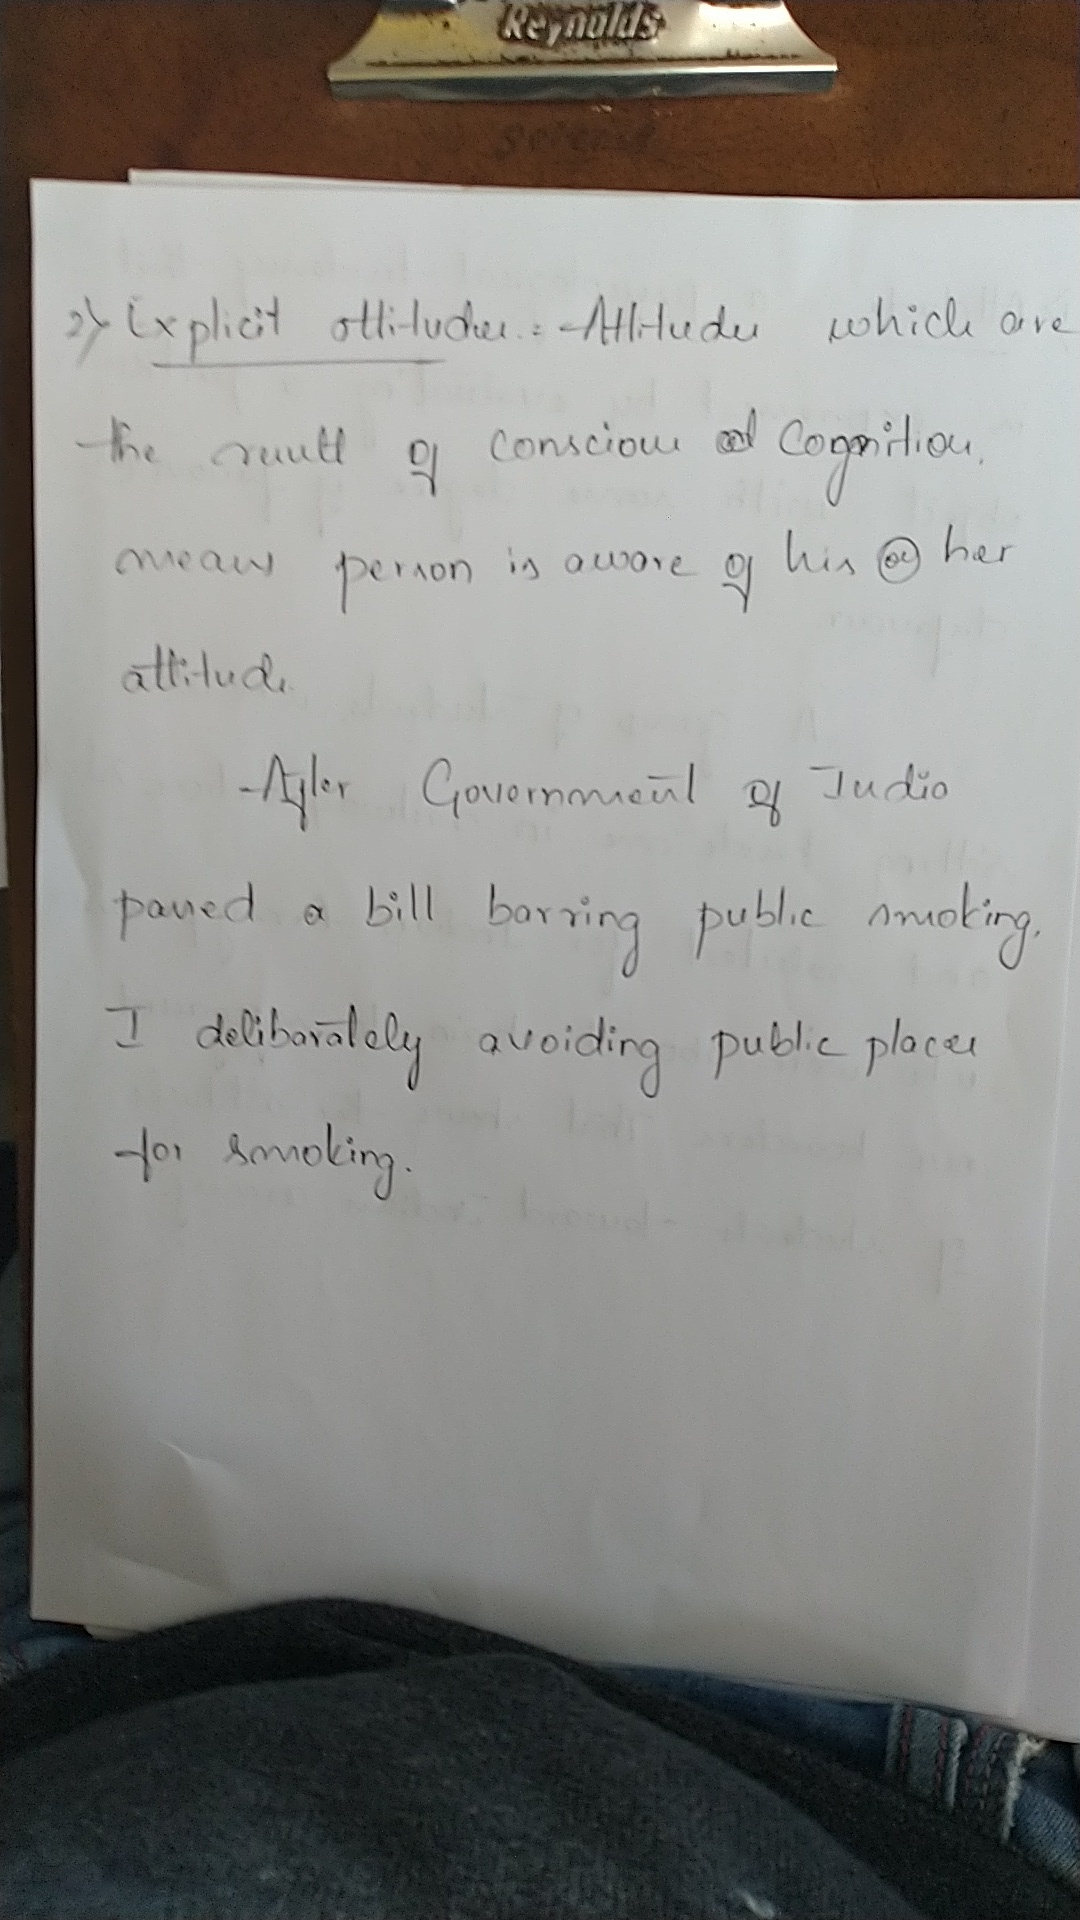 Reynolds
2) Explicit attitudes :- Attitudes which are
the result of conscious cognition.
means person is aware of his or her
attitude
After Government of India
passed a bill barring public smoking.
I delibarately avoiding public places
for smoking.